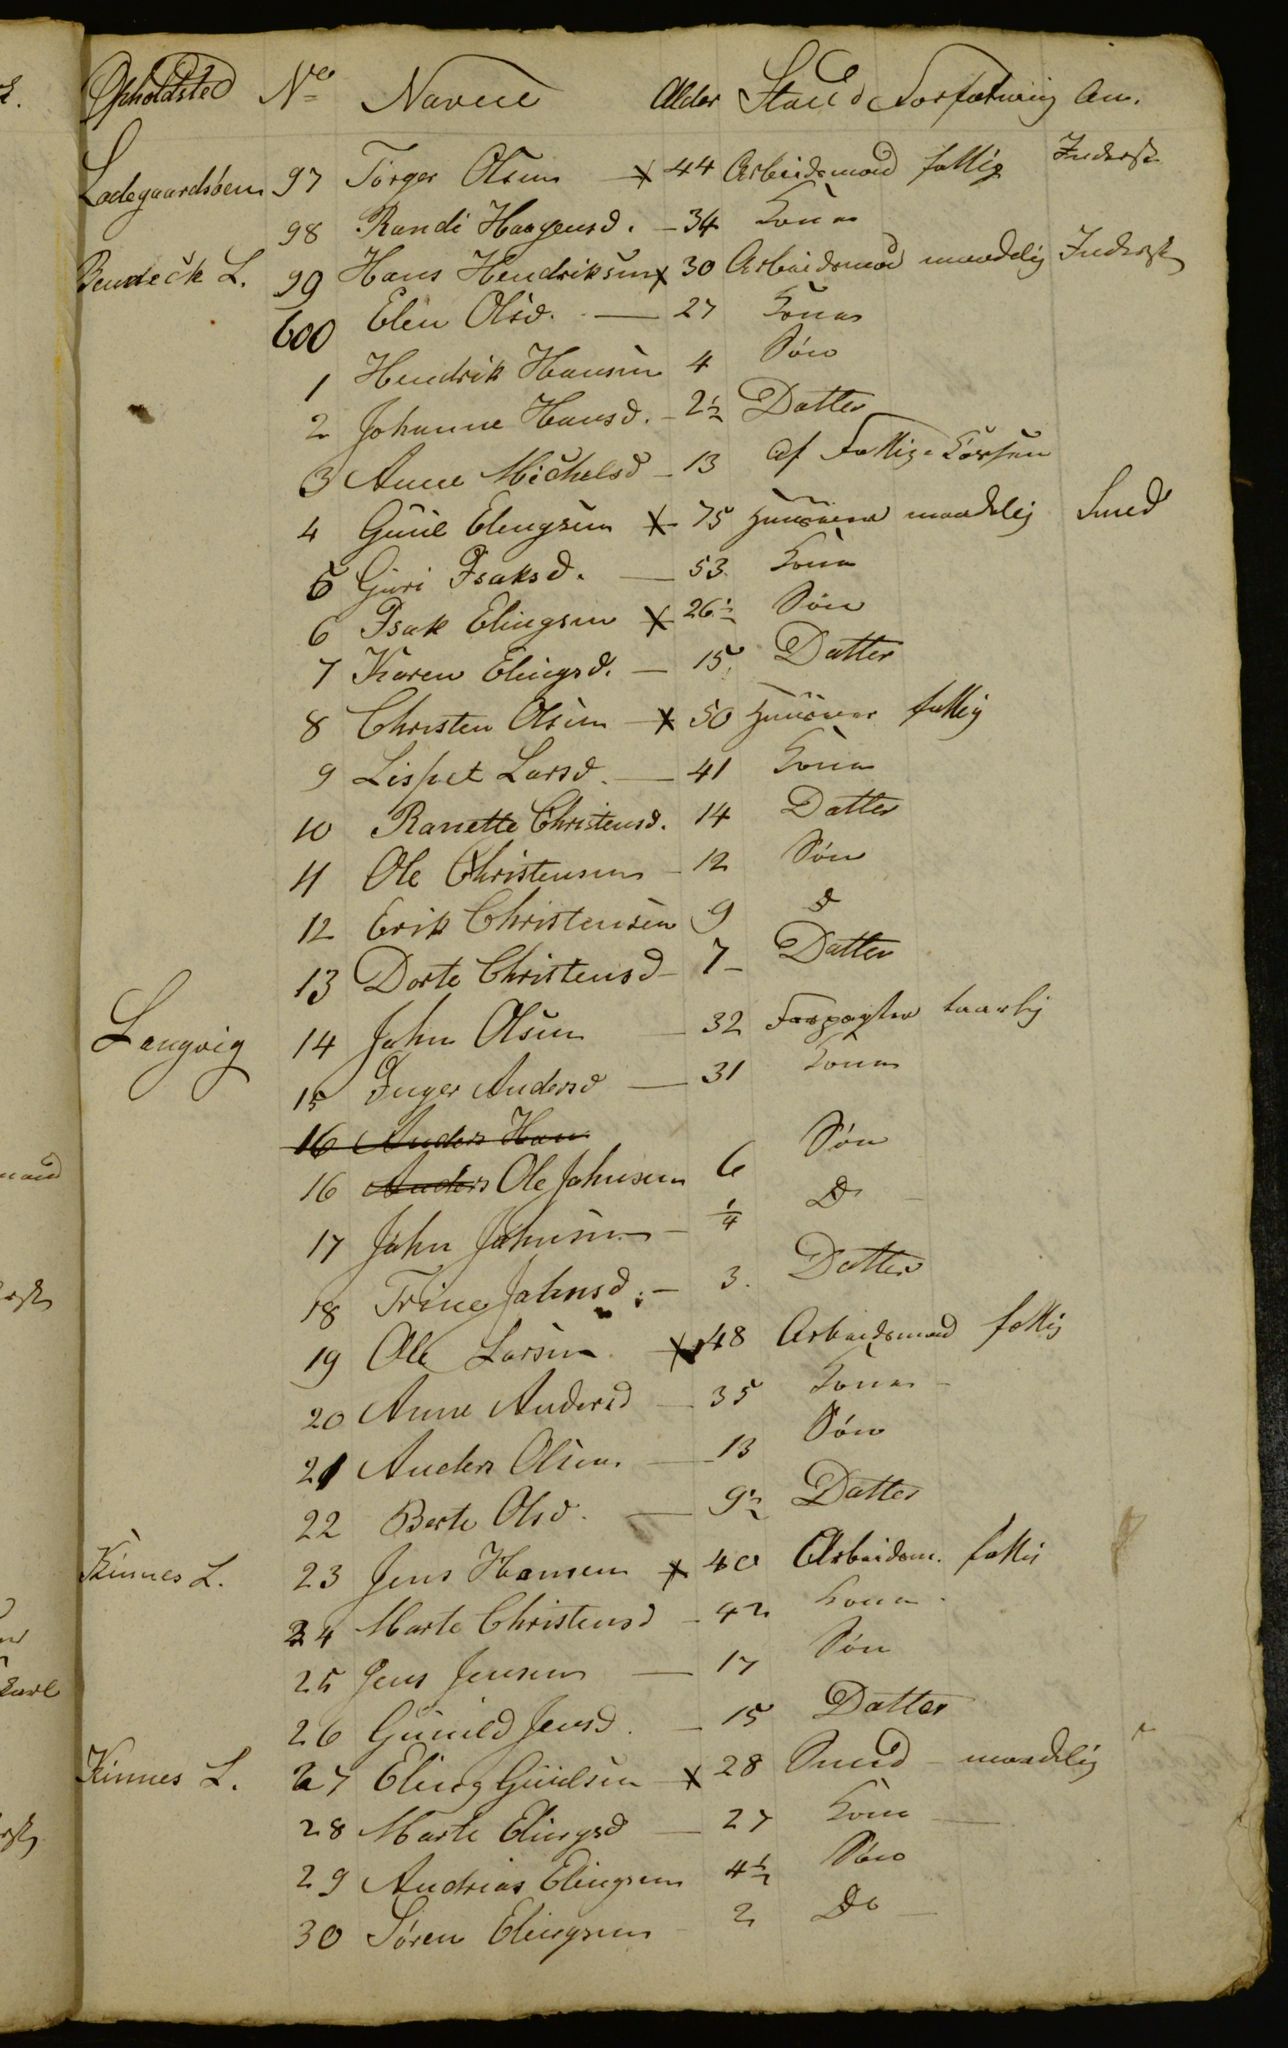 Opholdsted No Navne Alder Stand Forfatning Anm.
Ladegaardsøen 97 Torger Olsen x 44 Arbeidsmand fattig Inderst
98 Randi Haagensd. - 34 Kone
L. 99 Hans Hendriksen x 30 Arbeidsmand maadelig Inderst
600 Elen Olsd. - 27 Kone
1 Hendrik Hansen 4 Søn
2 Johanne Hansd. - 2½ Datter
3 Anne Michelsd - 13 af Fattige Cassen
4 Guul Elingsen x 75 Huusmand maadelig Smed
5 Guri Isaksd. - 53. Kone
6 Isak Elingsen x 26½ Søn
7 Karen Elingsd. - 15. Datter
8 Christen Olsen x 50 Huusmand fattig
9 Lisbet Larsd. - 41 Kone
10 Ranette Christensd. 14 Datter
11 Ole Christensen - 12 Søn
12 Erik Christensen 9 D
13 Dorte Christensd - 7 - Datter
Langvig 14 John Olsen - 32 Forpagter taarlig
15 Inger Andersd - 31 Kone
16 Anders Han
16 Anders Ole Johnsen 6 Søn
17 John Johnsen - ¼ Do -
18 Trine Johnsd. - 3. Datter
19 Ole Larsen x 48 Arbeidsmand fattig
20 Anne Andersd - 35 Kone -
21 Anders Olsen - 13 Søn
22 Berte Olsd. - 9½ Datter
Kinnes L. 23 Jens Hansen x 40 Arbeidsm. fattig
24 Marte Christensd - 42 Kone.
25 Jens Jensen - 17 Søn
26 Gunild Jensd. - 15 Datter
Kinnes L. 27 Eling Guulsen x 28 Smed - maadelig
28 Marte Elingsd - 27 Kone -
29 Andreas Elingsen 4½ Søn
30 Søren Elingsen - 2 Do -